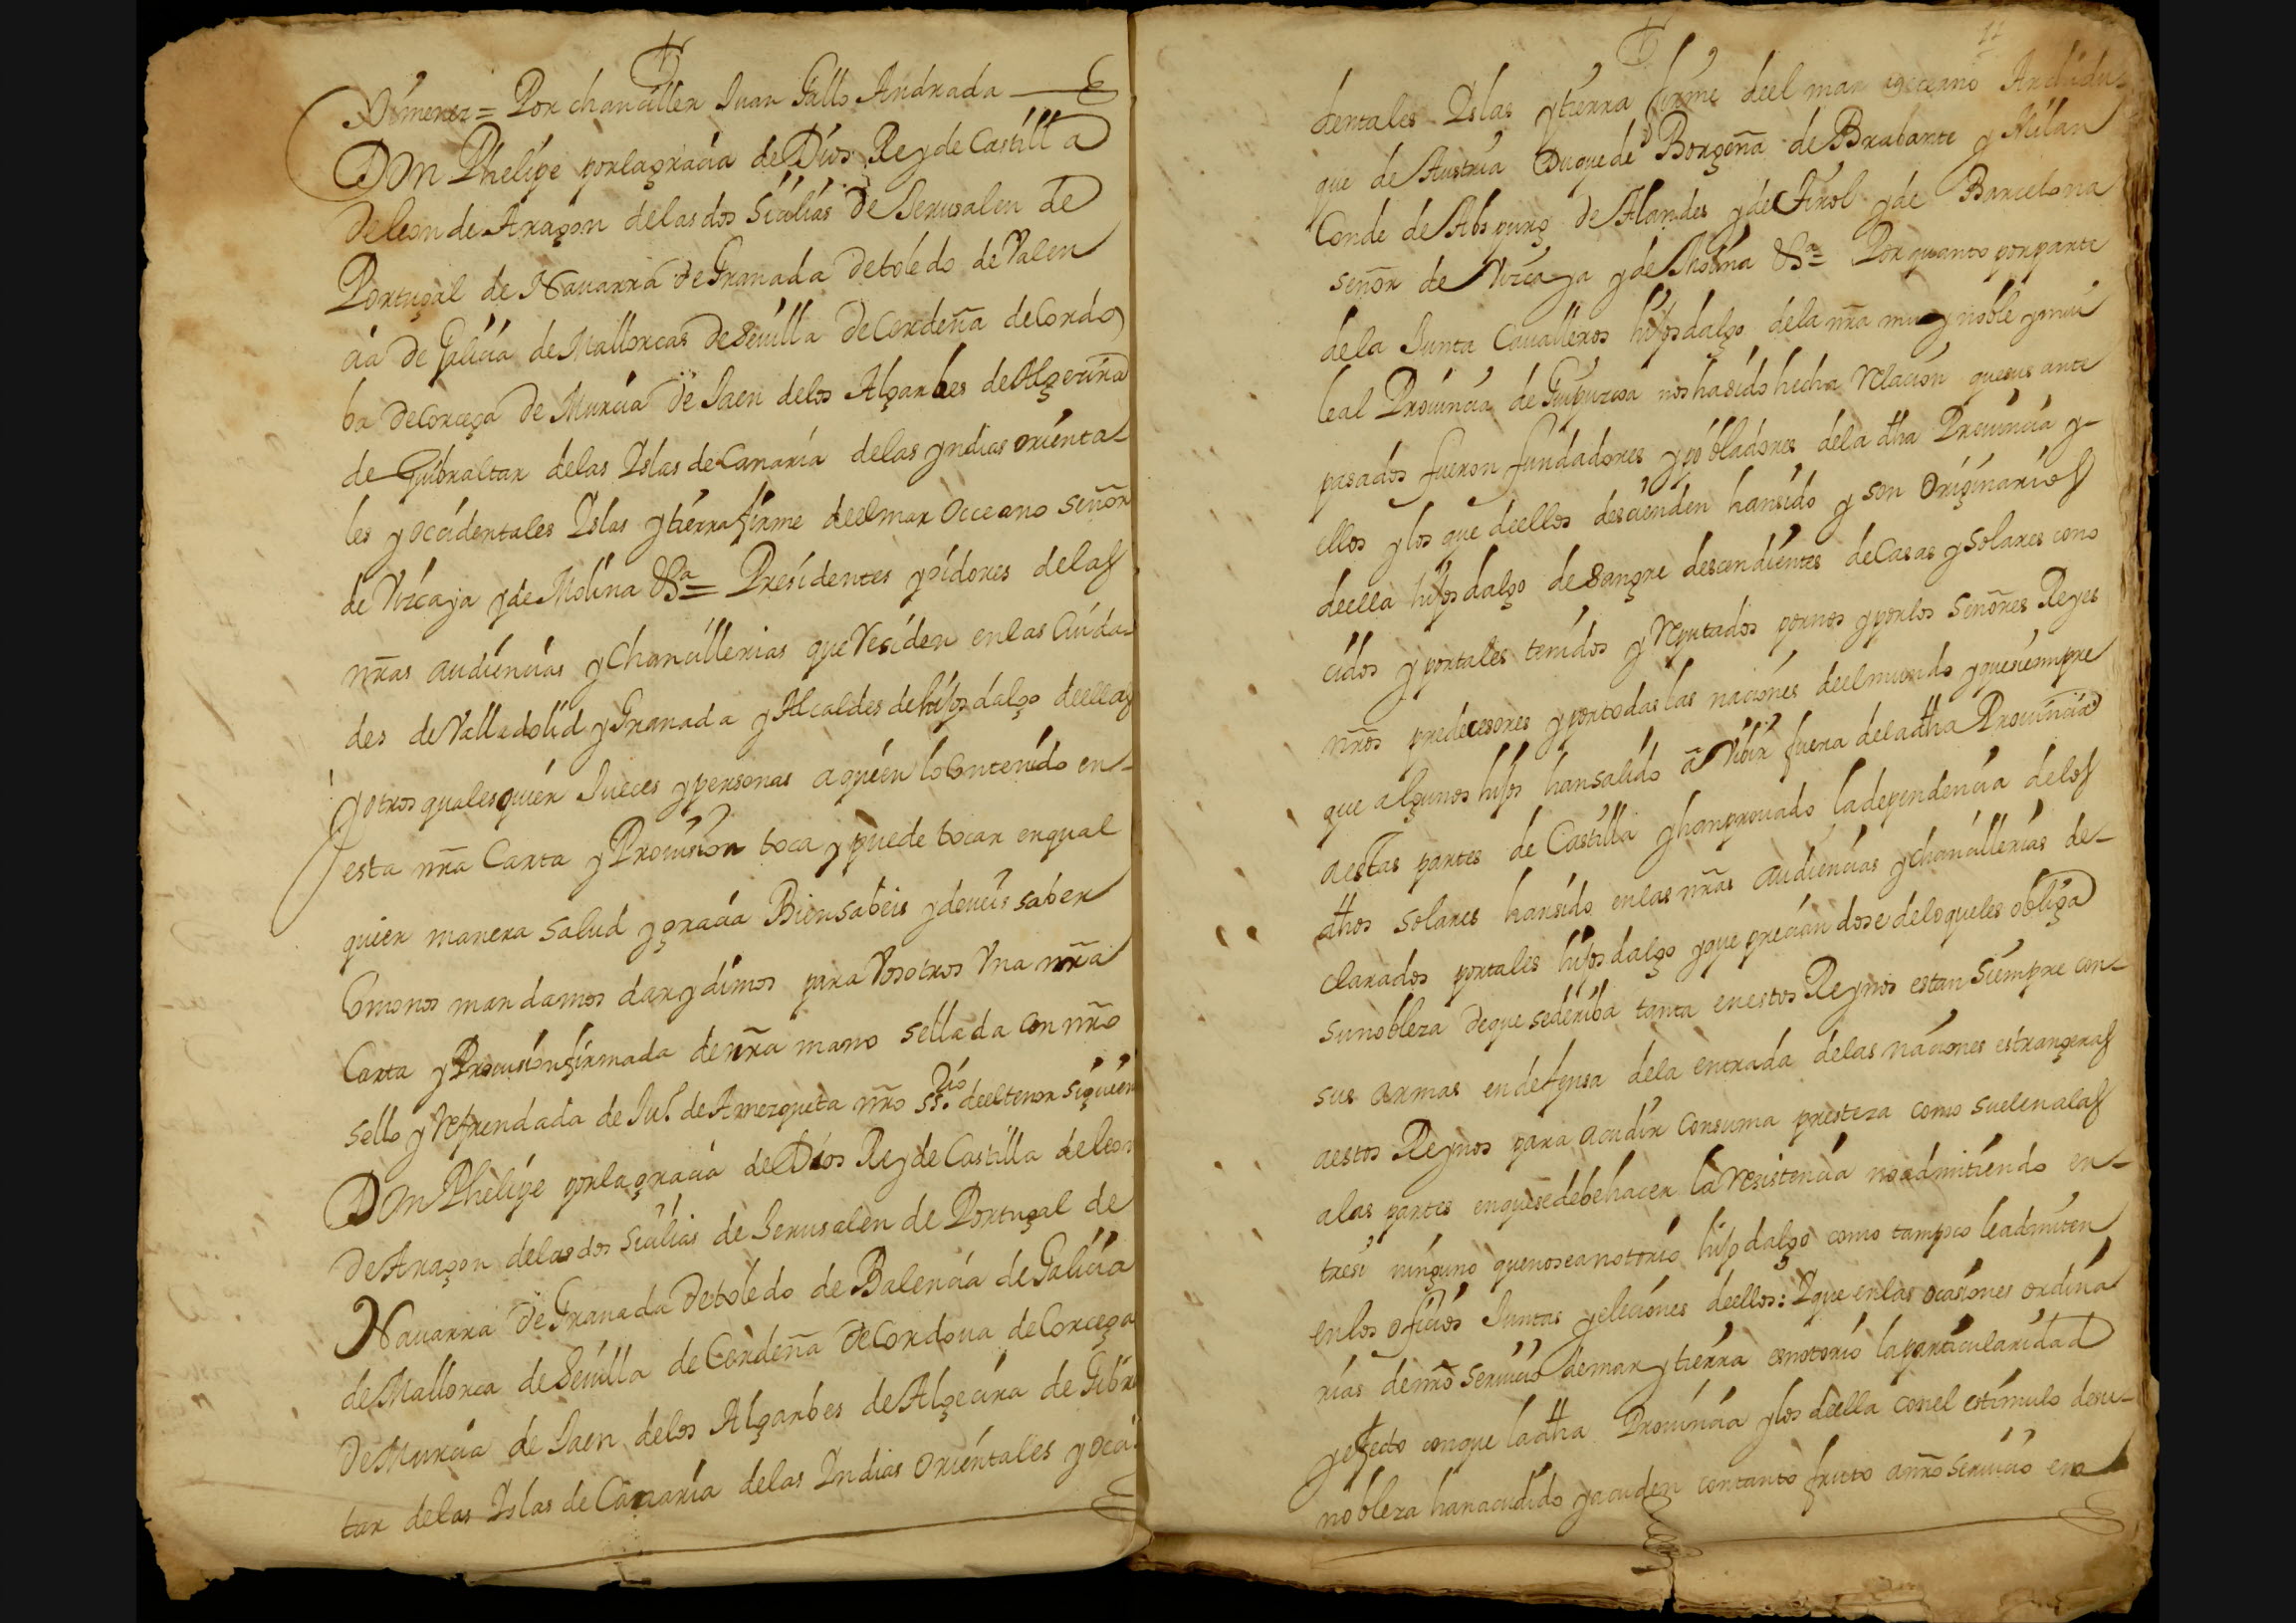 Ximenez = Por chanciller Juan Gallo Andrada
Don Phelipe porlagracia de Dios Rey de Castilla
de leon de Aragon delas dos Sicilias de Jerusalen de
Portugal de Nauarra de Granada de toledo de Valen
cia de Galicia de Mallorcas de Seuilla de Cerdeña de Cordo
ba de Corcega de Murcia de Jaen delos Algarbes de Algecira
de Guibraltar delas Yslas de Canaria delas yndias orienta-
les y occidentales Yslas ytierra firme deel mar Occeano señor
de Vizcaya y de Molina &a = Presidentes yoidores delas
nr̃as audiencias y Chancillerias que Residen enlas Ciuda-
des de Valladolid y Granada y Alcaldes de hijos dalgo deellas
y otros qualesquier Jueces y personas aquien lo Contenido en-
esta nr̃a Carta y Prouision toca y puede tocar enqual
quier manera salud y gracia Bien sabeis y deueis saber
Comonos mandamos dar y dimos para Vosotros Vna nr̃a
Carta y Prouision firmada denr̃a mano sellada con nr̃o
sello y Refrendada de Jul. de Amezqueta nr̃o ss.rio deeltenor siguien
Don Phelipe porla gracia de Dios Rey de Castilla de leon
de Aragon delas dos Sicilias de Jerusalen de Portugal de
Nauarra de Granada de toledo de Balencia de Galicia
de Mallorca de Seuilla de Cerdeña de Cordoua de Corcega
de Murcia de Jaen delos Algarbes de Algecira de Gibral
tar delas Yslas de Canaria delas Indias Orientalles y occi
dentales Yslas ytierra firme deel mar occeano Archidu-
que de Austria Duque de Borgoña de Brabante y Milan
Conde de Abspurg de Flandes y de Tirol y de Barcelona
señor de Vizcaya y de Molina &a = Por quanto por parte
dela Junta Caualleros hijos dalgo dela nr̃a muy noble y mui
leal Prouincia de Guipuzcoa nos hasido hecha Relacion quesus ante
pasados fueron fundadores y pobladores dela dha Prouincia y-
ellos y los que deellos descienden hansido y son Originarios
deella hijos dalgo de sangre descendientes de Casas y Solares cono
cidos y portales tenidos y Reputados pornos y porlos señores Reyes
nr̃os predecesores y portodas las naciones deelmundo yquesiempre
que algunos hijos han salido à Viuir fuera dela dha Prouincia
aestas partes de Castilla y hanprouado la dependencia delos
dhos solares hansido enlas nr̃as audiencias y chancillerias de-
clarados portales hijos dalgo y que preciandose deloqueles obliga
sunobleza deque sederiba tanta enestos Reynos estan siempre con-
sus armas en defensa dela entrada delas naciones estrangeras
aestos Reynos para acudir Consuma presteza como suelen alas
alas partes enque sedebe hacer la Resistencia no admitiendo en-
tresi ninguno quenosea notorio hijo dalgo como tampoco leadmiten
enlos oficios Juntas y eleciones deellos: Yque enlas ocasiones ordina
rias denr̃o seruicio demar y tierra esnotorio la particularidad
y efecto conque la dha Prouincia y los deella conel estimulo desu-
nobleza hanacudido y acuden contanto fruto anr̃o seruicio en